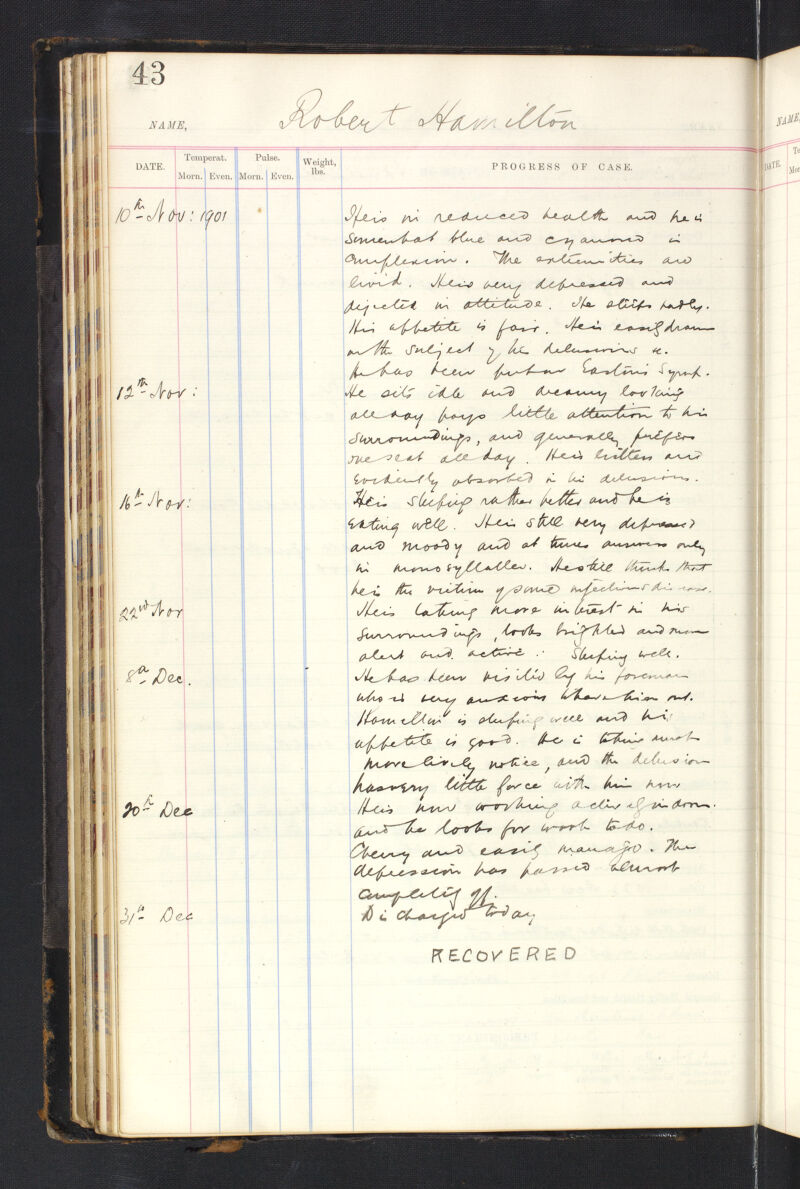 43
NAME, Robert Hamilton
DATE. Temperat. Pulse. Weight, lbs. PROGRESS OF CASE.
Morn. Even. Morn. Even.
10th Nov: 1901 He is in reduced health and he is
somewhat blue and cyanosed in
complexion. The extremities are
livid. He is very depressed and
dejected in attitude. He sleeps badly.
His appetite is fair. He is easily drawn
on the subject of his delusions &c.
He has been put on Easton's Syrup.
12th Nov: He sits idle and dreamy looking
all day pays little attention to his
surroundings, and generally prefers
one seat all day. He is listless and
evidently absorbed in his delusions.
16th Nov: He is sleeping rather better and he is
eating well. He is still very depressed
and moody and at times answers only
in monosyllables. He still thinks that
he is the victim of some infectious disease.
22nd Nov He is taking more interest in his
surroundings, looks brighter and more
alert and active. Sleeping well.
8th Dec. He has been visited by his foreman
who is very anxious to have him out.
Hamilton is sleeping well and his
appetite is good. He is taking much
more lively notice, and the delusion
has very little force with him now
20th Dec He is now working actively indoors.
and he looks for work to do.
Cheery and easily managed. The
depression has passed almost
completely off.
31st Dec Discharged today
RECOVERED
NAME,
DATE. Te
Mor